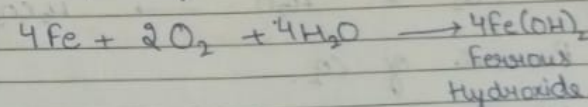 4Fe + 2O₂ + 4H₂O ⟶ 4Fe(OH)₂
Ferrous
Hydroxide